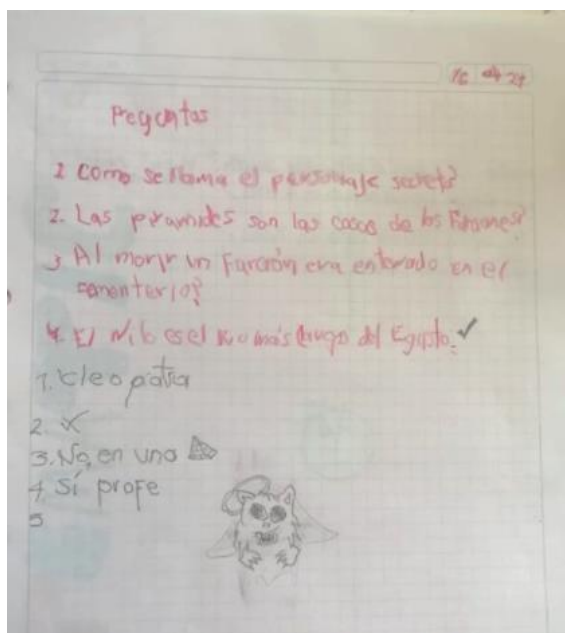 16 04 24
Preguntas
1 Como se llama el personaje secreto?
2. Las piramides son las casas de los Faraones?
3 Al morir un Faraón era enterado en el
sementerio?
4. El Nilo es el Rio más largo del Egipto. ✓
1. Cleopatra
2 X
3. No, en una
4 Sí profe
5